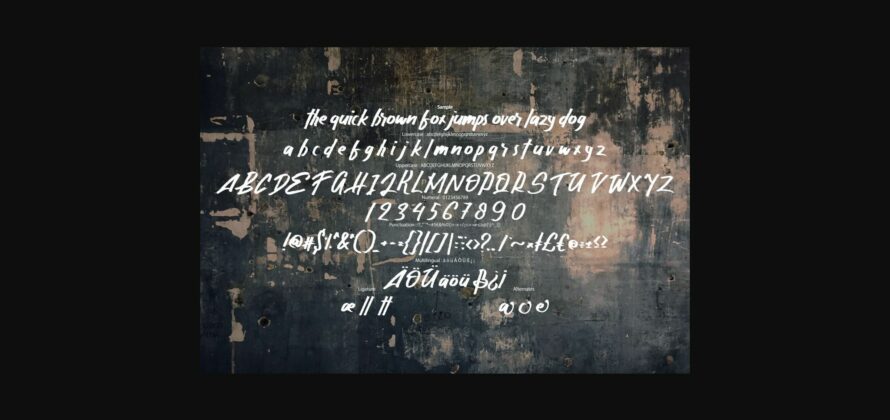 Sample
the quick brown fox jumps over lazy dog
Lowercase : abcdefghijklmnopqrstuvwxyz
a b c d e f g h i j k l m n o p q r s t u v w x y z
Uppercase : ABCDEFGHIJKLMNOPQRSTUVWXYZ
A B C D E F G H I J K L M N O P Q R S T U V W X Y Z
Numeral : 0123456789
1 2 3 4 5 6 7 8 9 0
Punctuation :
Multilingual : ä ö ü Ä Ö Ü ß ¿ ¡
Ä Ö Ü ä ö ü ß ¿ ¡
Ligature
Alternates
æ ll tt